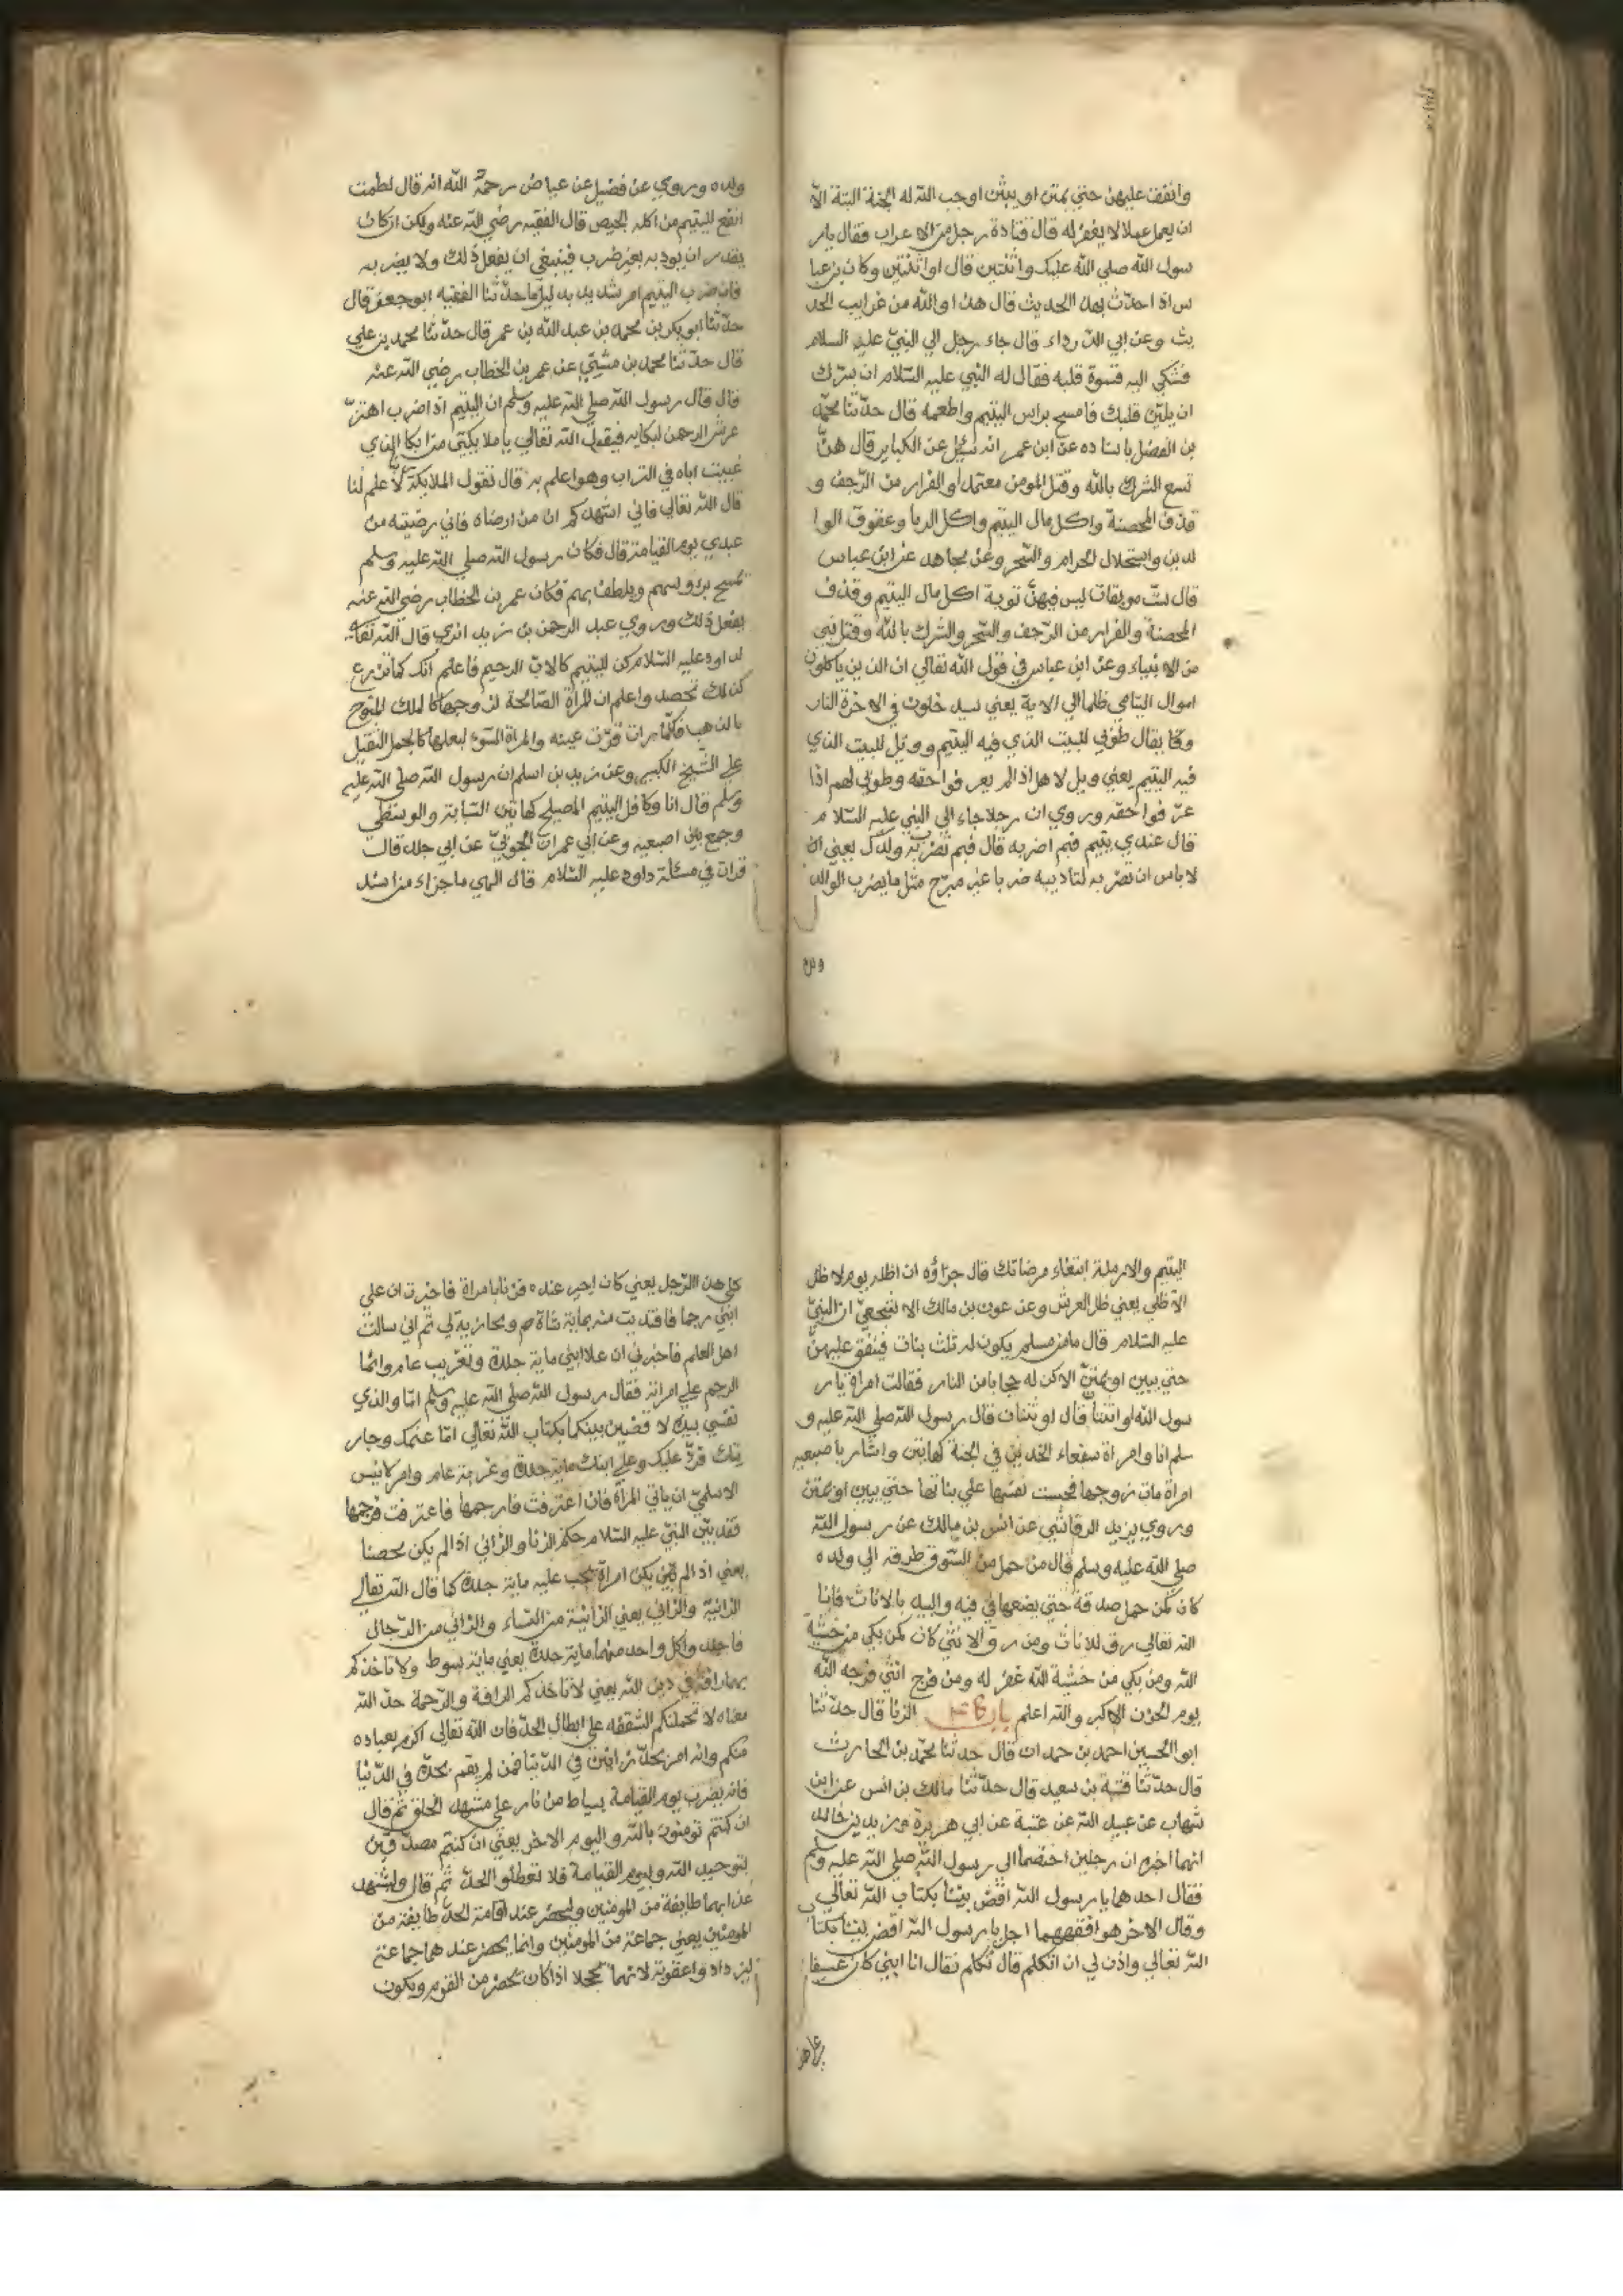 وانفق عليهن حتي يمتن او يبنّ اوجب الله له الجنة البتة الا
ان يعمل عملا لا يغفر له قال قتادة رجل من الاعراب فقال يار
سول الله صلي الله عليك واثنتين قال او اثنتين وكان بن عبا
س اذا حدّث بهذا الحديث قال هذا والله من غرايب الحد
يث وعن ابي الدّرداء قال جاء رجل الي النبيّ عليه السلام
فشكي اليه قسوة قلبه فقال له النبي عليه السّلام ان سرّك
ان يليّن قلبك فامسح براس اليتيم واطعمه قال حدّثنا محمّد
بن الفضل باسناده عن ابن عمر انه سئل عن الكباير قال هنّ
تسع الشرك بالله وقتل المومن معتمدا والفرار من الزّحف و
قذف المحصنة واكل مال اليتيم واكل الربا وعقوق الوا
لدين واستحلال الحرام والسّحر وعن مجاهد عن ابن عباس
قال ستّ موبقات ليس فيهنّ توبة اكل مال اليتيم وقذف
المحصنة والفرار من الزّحف والسّحر والشرك بالله وقتل نبي
من الانبياء وعن ابن عباس في قول الله تعالي ان الذين ياكلون
اموال اليتامي ظلما الي الاية يعني سيدخلون في الاخرة النار
وكما يقال طوبي للبيت الذي فيه اليتيم وويل للبيت الذي
فيه اليتيم يعني ويل لاهل اذا لم يعرفوا حقه وطوبي لهم اذا
عرّفوا حقه وروي ان رجلا جاء الي النبي عليه السّلام
قال عندي يتيم فبم اضربه قال فبم تضرب به ولدك يعني ان
لا باس ان تضربه لتاديبه ضربا غير مبرّح مثل ما يضرب الوالد
ولده وروي عن فضيل عن عياض رحمة الله انه قال لطمت
انفع لليتيم من اكله الخبيص قال الفقيه رضي الله عنه ولكن ان كان
يقدر ان يودبه بغير ضرب فينبغي ان يفعل ذلك ولا يضربه
فان ضرب اليتيم امر شديد بدليل ما حدّثنا الفقيه ابو جعفر قال
حدّثنا ابو بكر بن محمد بن عبد الله بن عمر قال حدّثنا محمد بن علي
قال حدّثنا محمد بن عن عمر بن الخطاب رضي الله عنه
قال قال رسول الله صلي الله عليه وسلم ان اليتيم اذا ضرب اهتزّ
عرش الرحمن لبكايه فيقول الله تعالي يا ملايكتي من ابكا الذي
غيبت اباه في التراب وهو اعلم به قال تقول الملايكة لا علم لنا
قال الله تعالي فاني اشهدكم ان من ارضاه فاني رضيته من
عبدي يوم القيامة قال فكان رسول الله صلي الله عليه وسلم
يمسح بروسهم ويلطف بهم فكان عمر بن الخطاب رضي الله عنه
يفعل ذلك وروي عبد الرحمن بن زيد قال الله تعالي
لداود عليه السّلام كن لليتيم كالاب الرحيم فاعلم انك كما تزرع
كذلك تحصد واعلم ان المراة الصّالحة لزوجها كا لملك المتوّج
بالذهب فكلّما رات قرّت عينه والمراة السّوء لبعلها كالحمل الثقيل
علي الشّيخ الكبير وعن زيد بن اسلم ان رسول الله صلّي الله عليه
وسلم قال انا وكافل اليتيم المصلح كهاتين السّبابة والوسطي
وجمع باني اصبعيه وعن ابي عمران الجونيّ عن ابي جلد قال
قرات في مسئلة داود عليه السّلام قال الهي ما جزاء من اسند
اليتيم والارملة ابتغاء مرضاتك قال جزاؤه ان اظله يوم لا ظل
الا ظلي يعني ظل العرش وعن عوف بن مالك الاشجعيّ ان النبيّ
عليه السّلام قال ما من مسلم يكون له ثلث بنات فينفق عليهنّ
حتي يبين او يمتنّ الا كن له حجابا من النار فقالت امراة يار
سول الله او اثنتا قال او ثنتان قال رسول الله صلي الله عليه و
سلم انا وامراة سفعاء الخدين في الجنة كهاتين واشار باصبعيه
امراة مات زوجها فحبست نفسها علي بناتها حتي يبين او يمتن
وروي يزيد الرقاشي عن انس بن مالك عن رسول الله
صلي الله عليه وسلم قال من حمل من السّوق طرفه الي ولده
كان كمن حمل صدقة حتي يضعها في فيه واليبد بالاناث فان
الله تعالي رق للاناث ومن رق لانثي كان كمن بكي من خشية
الله ومن بكي من خشية الله غفر له ومن فرّح انثي فرحه الله
يوم الحزن الاكبر والله اعلم باب الزنا قال حدّثنا
ابو الحسين احمد بن حمدان قال حدثنا محمّد بن الحارث
قال حدّثنا قتيبة بن سعيد قال حدّثنا مالك بن انس عن ابن
شهاب عن عبيد الله عن عتبة عن ابي هريرة وزيد بن خالد
انهما اخبرا ان رجلين اختصما الي رسول الله صلي الله عليه وسلم
فقال احدهما يا رسول الله اقض بيننا بكتاب الله تعالي
وقال الاخر هو افقههما اجل يا رسول الله اقض بيننا بكتاب
الله تعالي واذن لي ان اتكلم قال تكلم فقال انا ابني كان عسيفا
علي هذا الرّجل يعني كان اجير عنده فزنا بامراة فاخبرت ان علي
ابني رجما فافتديت منه بماية شاة وبجارية لي ثم اني سالت
اهل العلم فاخبرني ان علا ابني ماية جلدة وتغريب عام وانما
الرجم علي امراته فقال رسول الله صلي الله عليه وسلم امّا والذي
نفسي بيده لاقضين بينكما بكتاب الله تعالي امّا غنمك وجار
يتك فردّ عليك وعلي ابنك ماية جلدة وغربة عام وامر انيس
الاسلميّ ان ياتي المراة فان اعترفت فارجمها فاعترفت فرجمها
فقد بيّن النبيّ عليه السّلام حكم الزنا والزّاني اذا لم يكن محصنا
يعني اذا لم يكن امراة يجب عليه ماية جلدة كما قال الله تعالي
الزانية والزّاني يعني الزانية من النساء والزّاني من الرّجال
فاجلدوا كل واحد منهما ماية جلدة يعني ماية سوط ولا تاخذكم
بهما رافة في دين الله يعني لا تاخذكم الرافة والرّحمة حدّ الله
معناه لا تحملنكم الشفقة علي ابطال الحدّ فان الله تعالي اكرم بعباده
منكم وانه امر بحدّ زانين في الدّنيا فمن لم يقم بحدّ في الدّنيا
فانه يضرب يوم القيامة بسياط من نار علي مشهد الخلق ثم قال
ان كنتم تومنون بالله واليوم الاخر يعني ان كنتم مصدّقين
بتوحيد الله وبيوم القيامة فلا تعطلو الحدّ ثم قال وليشهد
عذابهما طايفة من المومنين وليحضر عند اقامة الحدّ طايفة من
المومنين يعني جماعة من المومنين وانما يحضر عندهما جماعة
ليزداد واعقوبة لانهما اذا كان تحضر من القوم ويكون